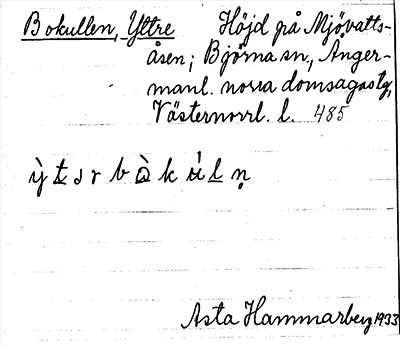 Bokullen, Yttre Höjd på Mjövatts-
åsen; Björna sn, Ånger-
manl. norra domsagas tg,
Västernorrl. l. 485
Asta Hammarberg 1933